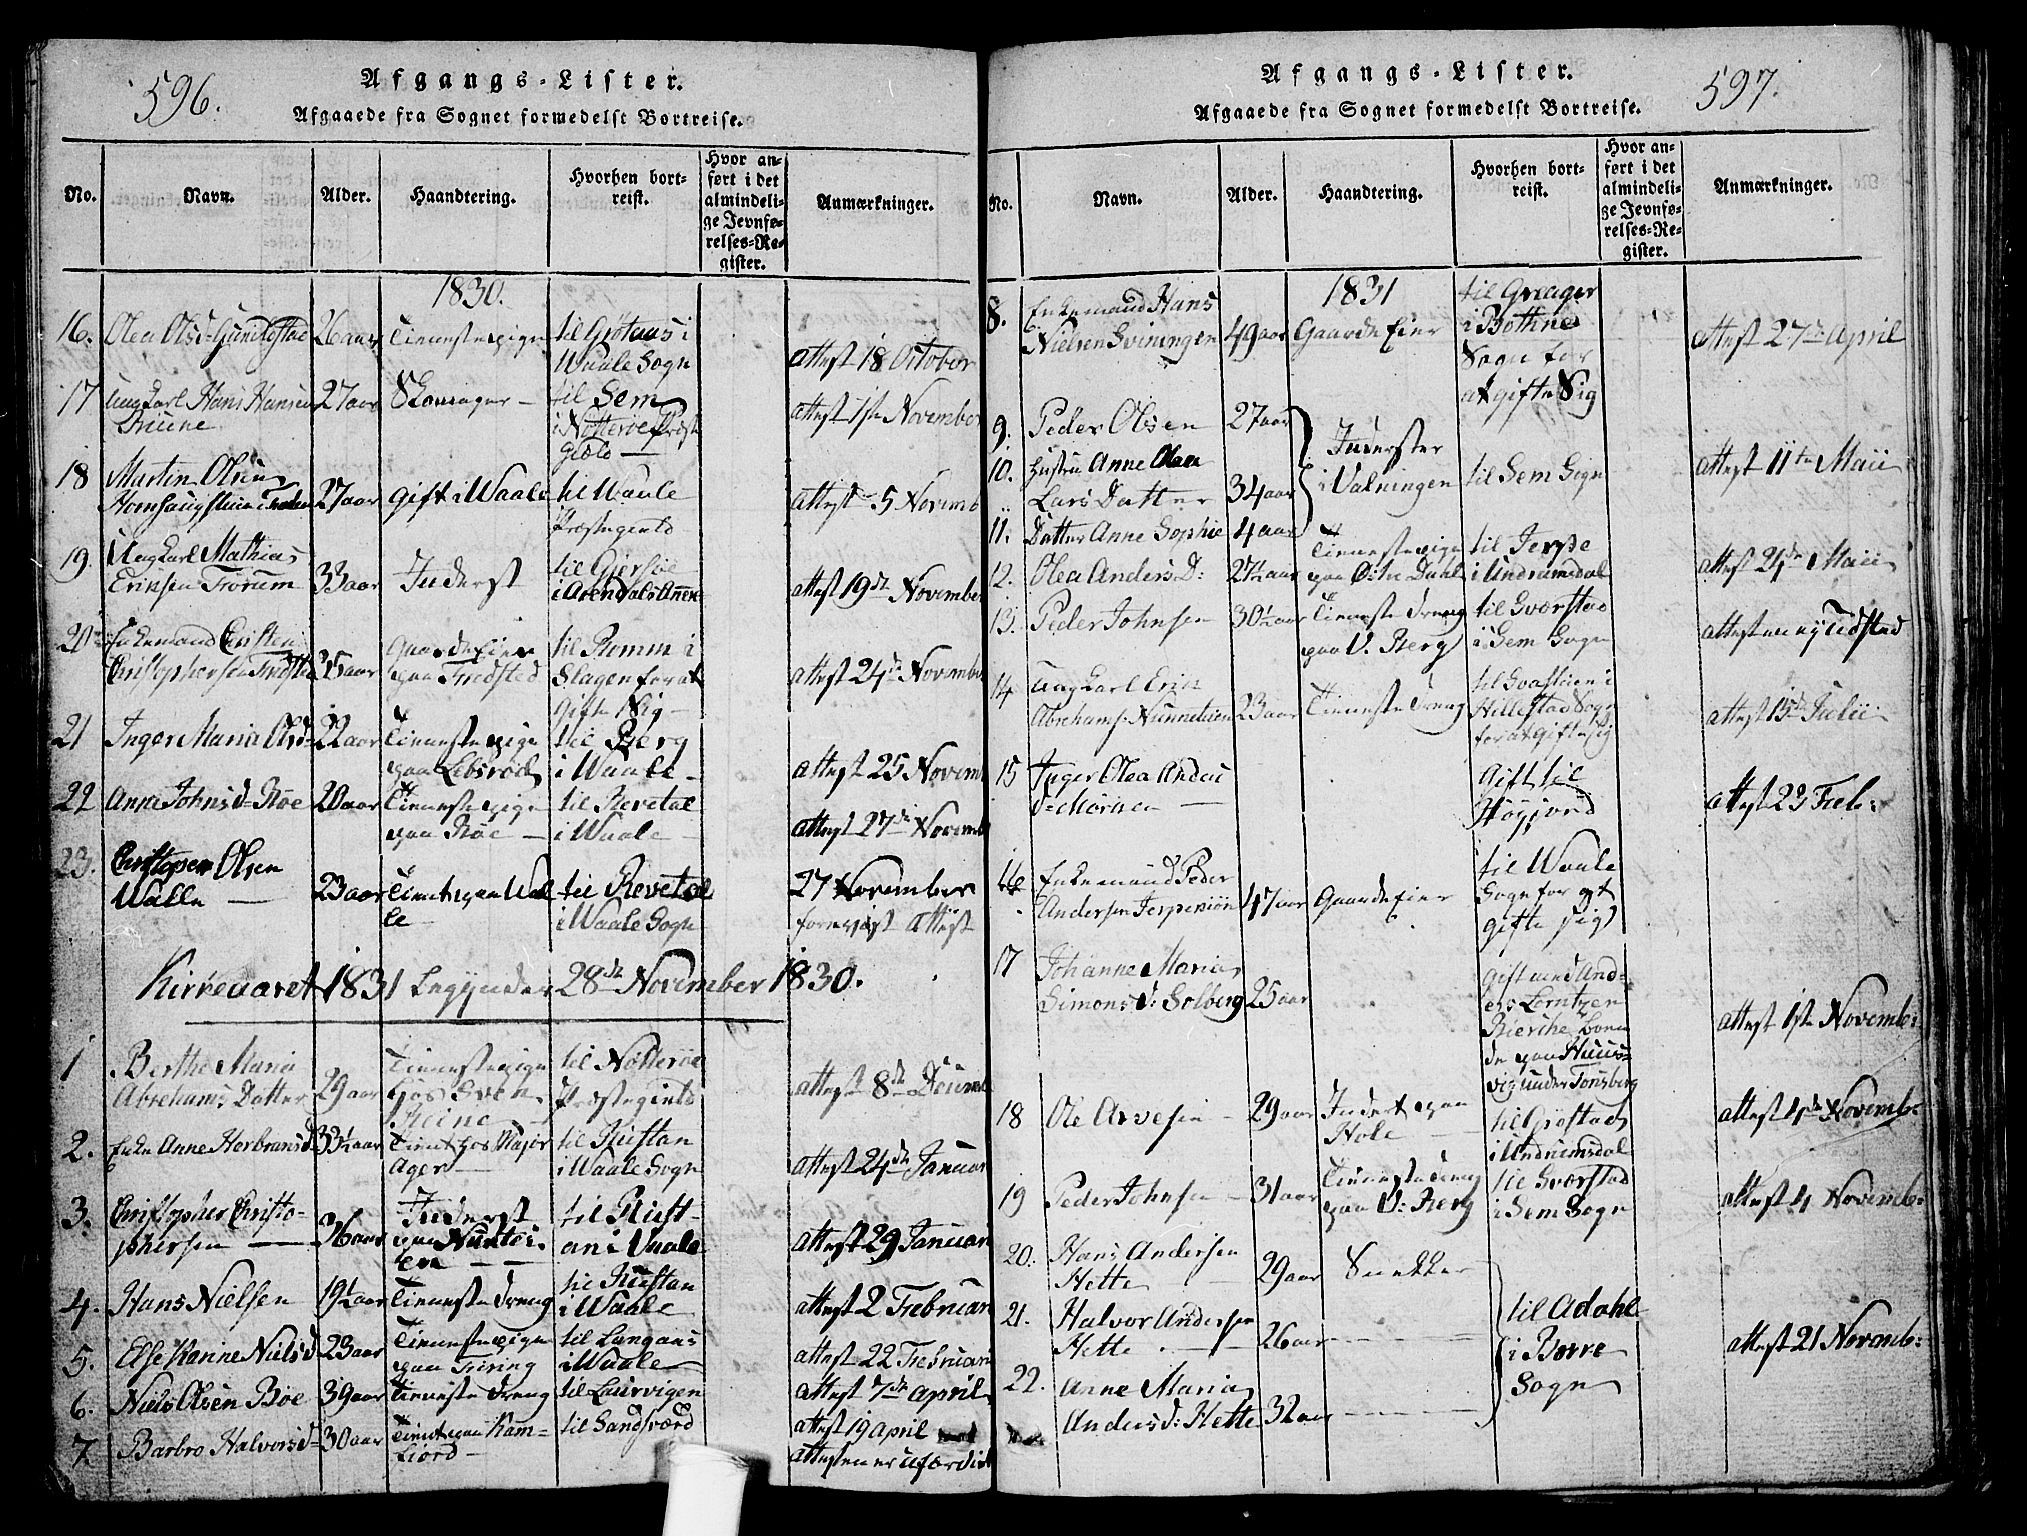 596.
Afgangs-Lister.
Afgaaede fra Sognet formedelst Bortreise.
No. Navn. Alder. Haandtering. Hvorhen bortreist. Hvor anført i det almindelige Jevnførelses-Register. Anmærkninger.
1830.
16. Olea Olsd: 26 aar Tienestepige til Grøtaas i Waale Sogn attest 18 October
17 Ungkarl Hans Hansen 27 aar til Sem i Nötteröe Præstegield attest 1ste November
18 Martin Olsen 27 aar Gift i Waale til Waale Præstegield attest 5 Novemb
19. Ungkarl Mathias Eriksen Frorum 33 aar Inderst til i Arendals attest 19de November
20 Enkemand Christen Christophersen Fredsted 35 aar Gaardeeier paa Fredsted til Romm i Slagen for at Gifte Sig attest 24de November
21 Inger Maria Olsd= 22 aar Tienestepige paa til Berg i Waale attest 25 Novem
22 Anne Johnsd= Röe 20 aar Tienestepige paa Röe til Revetal i Waale attest 27de Novemb
23. Christopher Olsen Walle 23 aar Tient paa Walle til Revetal i Waale Sogn 27 November forevist Attest
Kirkeaaret 1831 begynder 28de November 1830.
1 Berthe Maria Abrehams Datter 29 aar Tienestepige hos Sven til Nötteröe Præstegield attest 8de Decemb
2. Enke Anne Herbransd 33½ aar Tient hos Major Ager til Rustan i Waale Sogn attest 24de Januar
3. Christopher Christophersen 36 aar Inderst paa til Rustan i Vaale attest 29 Januari
4. Hans Nielsen 19½ aar Tienestedreng til Rustan i Waale attest 2 Februari
5. Else Karine Nielsd 23 aar Tienestepige paa til Langaas i Waale attest 22 Februari
6. Niels Olsen Böe 39 aar Tienestedreng til Laurvigen attest 7de April
7. Barbro Halvorsd= 30 aar Tient paa Kamfiord til Sandsværd attest 19 April
attesten er ufærdig
597.
Afgangs-Lister.
Afgaaede fra Sognet formedelst Bortreise.
No. Navn. Alder. Haandtering. Hvorhen bortreist. Hvor anført i det almindelige Jevnførelses-Register. Anmærkninger.
1831
8. Enkemand Hans Nielsen Sviningen 49 aar Gaardeeier til i Bothne Sogn for at gifte Sig attest 27de April
9. Peder Olsen 27 aar Inderster i Valningen til Sem Sogn attest 11te Maii
10. Hustru Anne Olea Lars Datter 34 aar
11. Datter Anne Sophie 4 aar
12. Olea Anders D: 27½ aar Tienestepige paa Ö: Dahl til Jerpe i Undrumsdal attest 21de Maii
13. Peder Johnsen 30½ aar Tienestedreng paa V. Berg til Sværstad i Sem Sogn attesten ey Udsted
14 Ungkarl Eric Abrehams: Nunnetuien 23 aar Tienestedreng til i Hillestad Sogn for at gifte sig attest 15de Julii
15 Inger Olea Anders d: Gift til Högjord attest 23 Feb:
16 Enkemand Peder Andersen 47 aar Gaardeeier til Waale Sogn for at gifte sig
17 Johanne Maria Simons d: Solberg 25 aar Gift med Anders Lorntzen Bierche boende paa Huusvig under Tönsberg attest 1ste Novemb:
18 Ole Arvesen 29 aar Inderst paa Hole til Gröstad i Undrumsdal attest 4de Novemb:
19 Peder Johnsen 31 aar Tienestedreng paa V: Berg til Sværstad i Sem Sogn attest 4 Novemb:
20. Hans Andersen Hette 29 aar Snekker til Adahl i Borre Sogn attest 21 Novemb:
21. Halvor Andersen Hette 26 aar
22. Anne Maria Anders d: Hette 32 aar